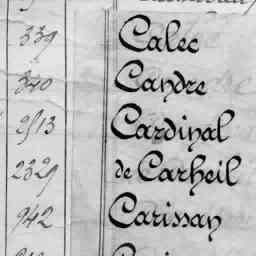 339 Calec
340 Candre
2513 Cardinal
2329 de Carheil
942 Carissan